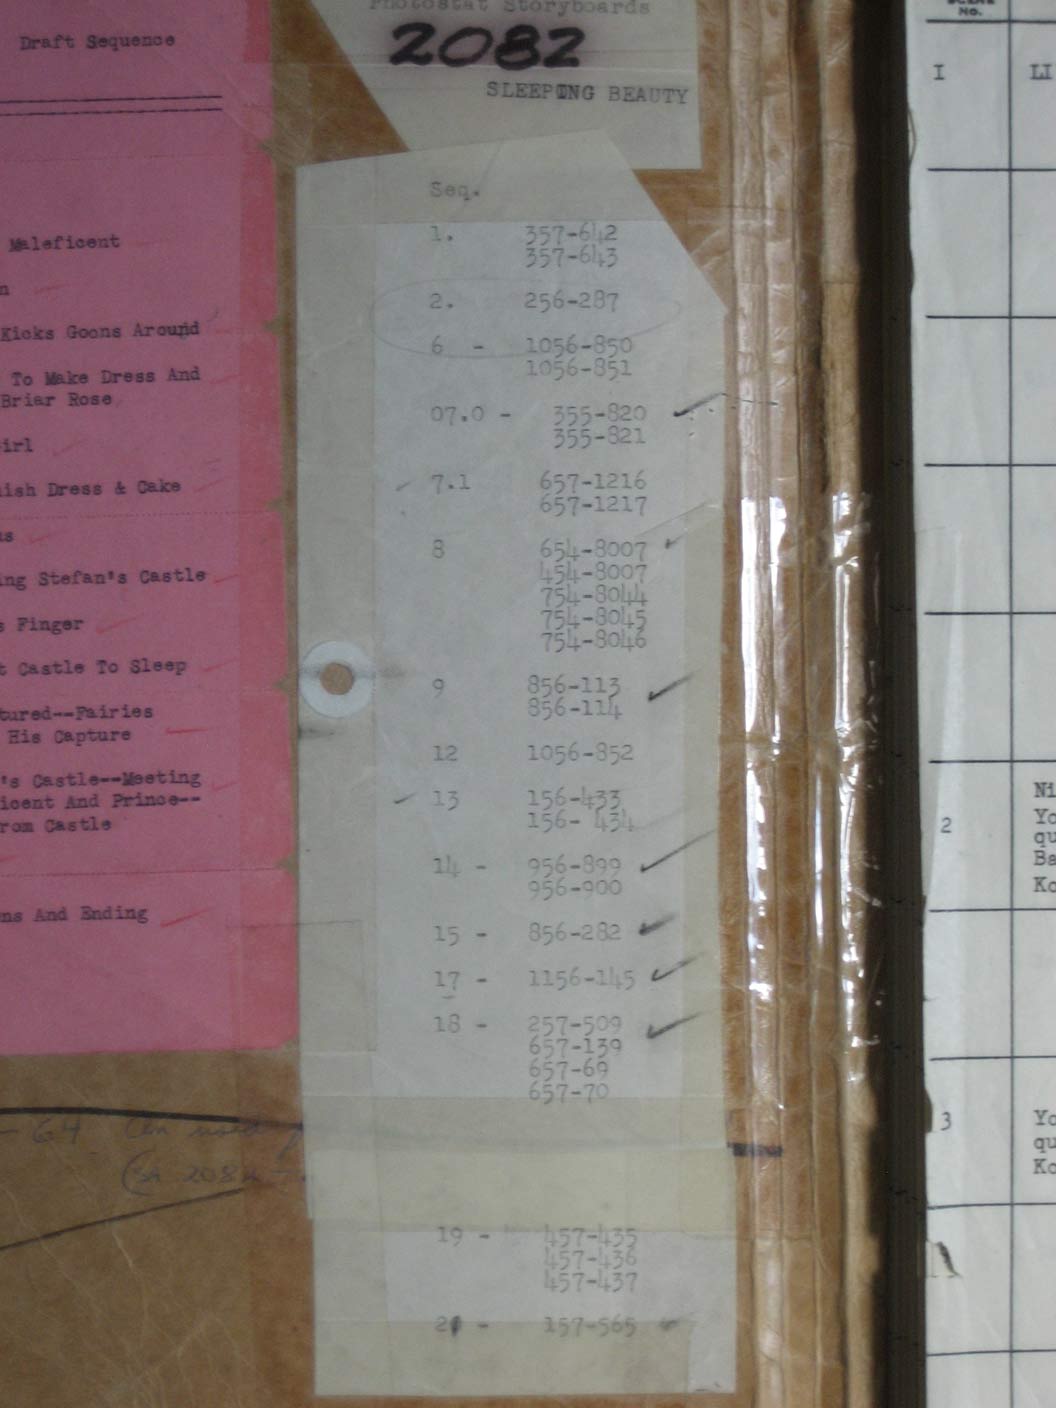 Draft Sequence
Maleficent
n
Kicks Goons Around
To Make Dress And
Briar Rose
irl
ish Dress & Cake
s
ing Stefan's Castle
s Finger
t Castle To Sleep
tured--Fairies
His Capture
's Castle--Meeting
icent And Prince--
rom Castle
ns And Ending
- 64 Can used
Photostat Storyboards
2082
SLEEPING BEAUTY
Seq.
1. 357-642
357-643
2. 256-287
6 - 1056-850
1056-851
07.0 - 355-820
355-821
7.1 657-1216
657-1217
8 654-8007
454-8007
754-8044
754-8045
754-8046
9 856-113
856-114
12 1056-852
13 156-433
156- 434
14 - 956-899
956-900
15 - 856-282
17 - 1156-145
18 - 257-509
657-139
657-69
657-70
19 - 457-435
457-436
457-437
- 157-565
SCENE
NO.
I LI
Ni
2 Yo
qu
Ba
Ko
3 Yo
qu
Ko